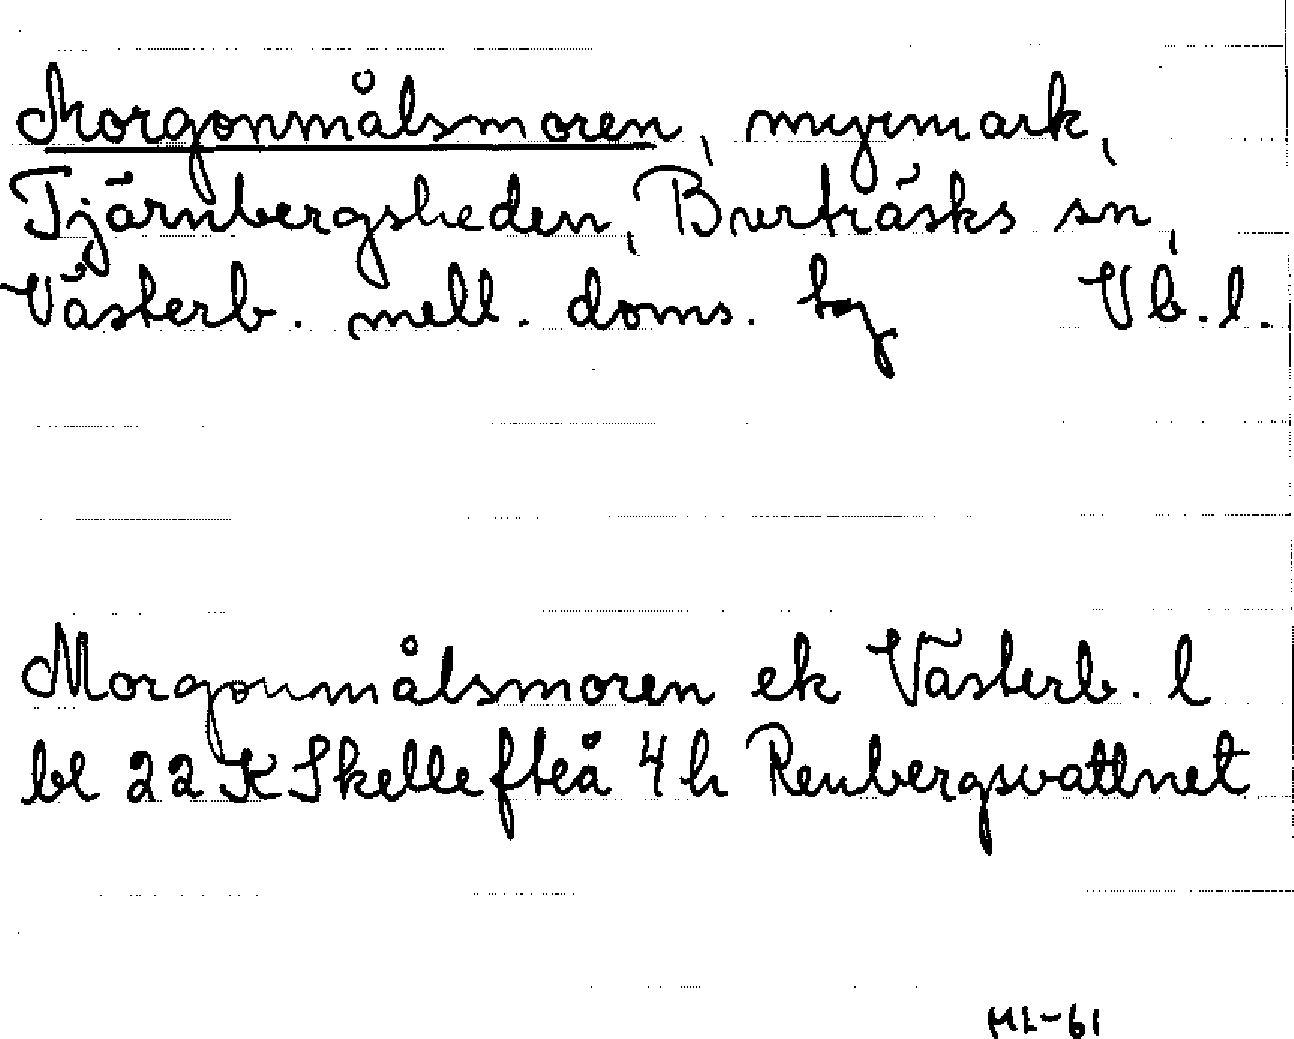 Morgonmålsmoren, myrmark,
Tjärnbergsheden, Burträsks sn,
Västerb. mell. doms. tg Vb.l.
Morgonmålsmoren ek Västerb. l
bl 22 K Skellefteå 4h Renbergsvattnet
ML-61